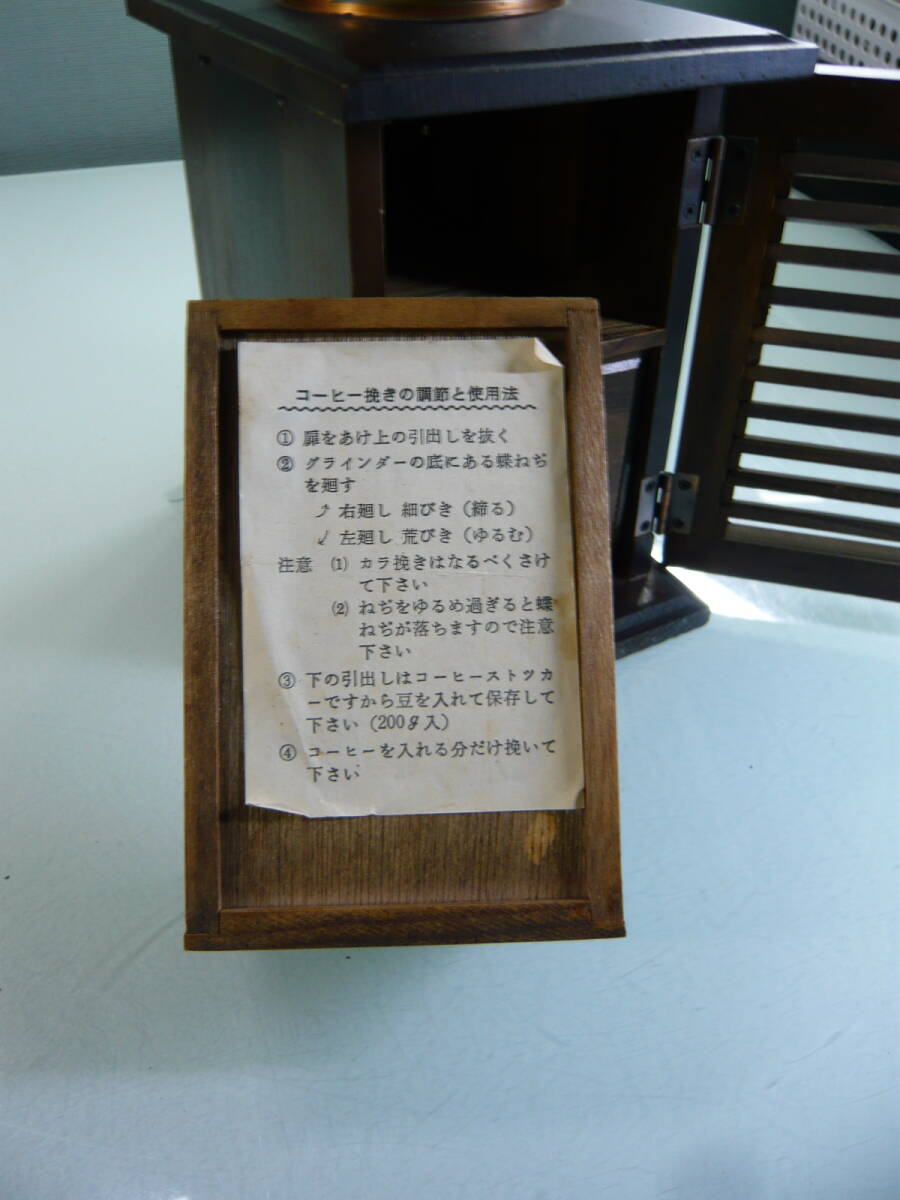 コーヒー挽きの調節と使用法
① 扉をあけ上の引出しを抜く
② グラインダーの底にある蝶ねぢ
を廻す
右廻し 細びき（締る）
左廻し 荒びき（ゆるむ）
注意 (1) カラ挽きはなるべくさけ
て下さい
(2) ねぢをゆるめ過ぎると蝶
ねぢが落ちますので注意
下さい
③ 下の引出しはコーヒーストツカ
ーですから豆を入れて保存して
下さい（200g入）
④ コーヒーを入れる分だけ挽いて
下さい